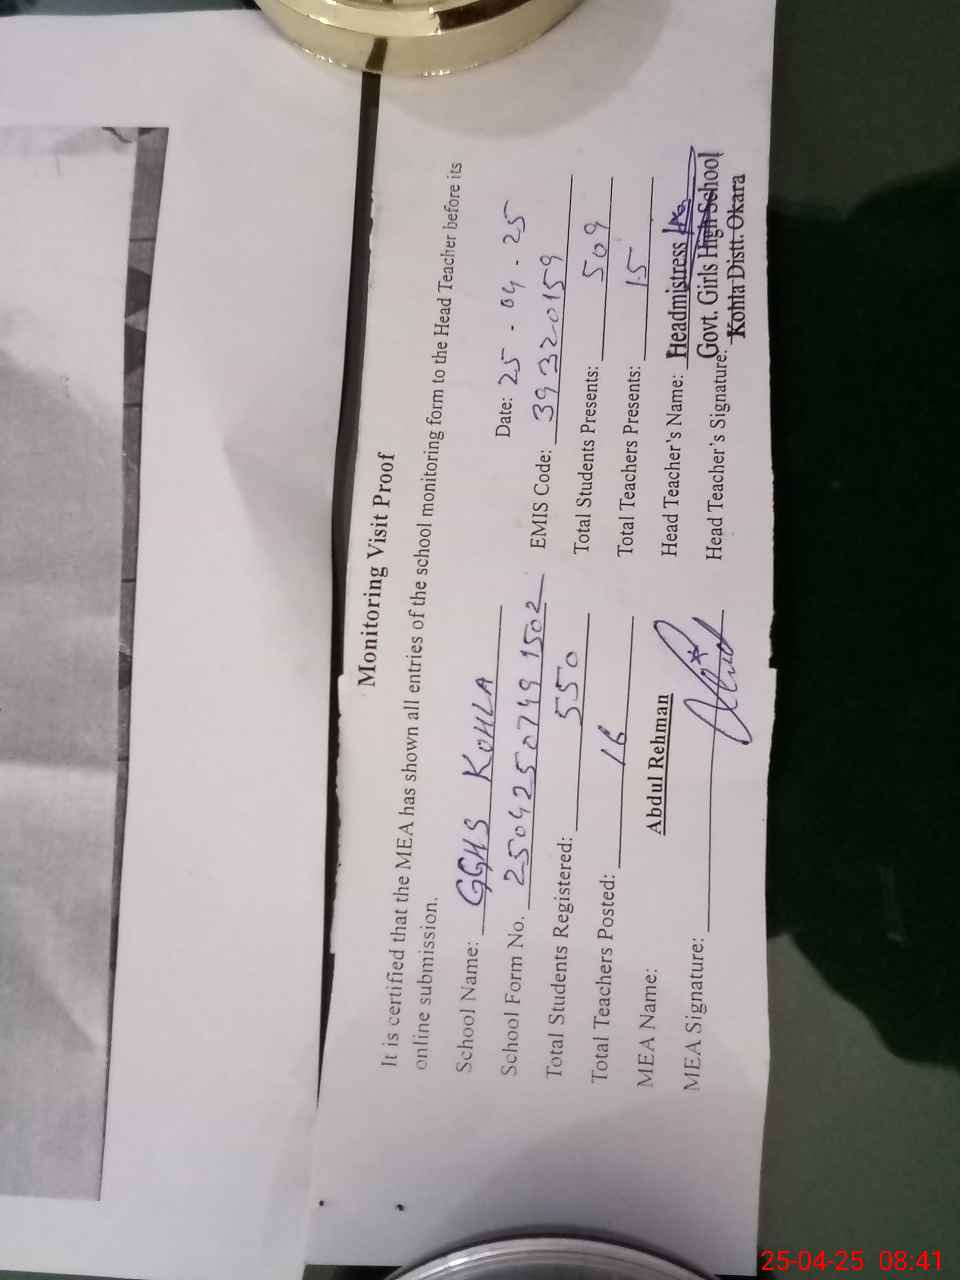 Monitoring Visit Proof
It is certified that the MEA has shown all entries of the school monitoring form to the Head Teacher before its
online submission.
School Name: GGHS KOHLA Date: 25 - 04 - 25
School Form No. 25042507491502 EMIS Code: 39320159
Total Students Registered: 550 Total Students Presents: 509
Total Teachers Posted: 16 Total Teachers Presents: 15
MEA Name: Abdul Rehman Head Teacher's Name: Headmistress
Govt. Girls High School
MEA Signature: Head Teacher's Signature: Kohla Distt. Okara
25-04-25 08:41